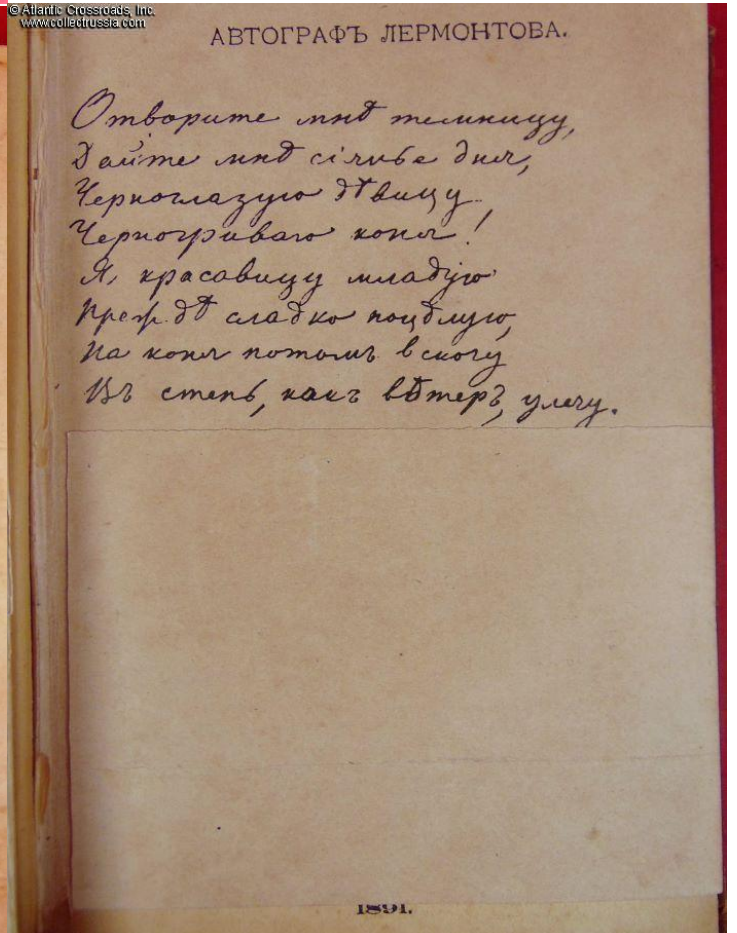 © Atlantic Crossroads, Inc.
www.collectrussia.com
АВТОГРАФЪ ЛЕРМОНТОВА.
Отворите мнѣ темницу,
Дайте мнѣ сіянье дня,
Черноглазую дѣвицу
Черногриваго коня!
Я, красавицу младую
Прежде сладко поцѣлую,
На коня потомъ вскочу
Въ степь, какъ вѣтеръ, улечу.
1891.